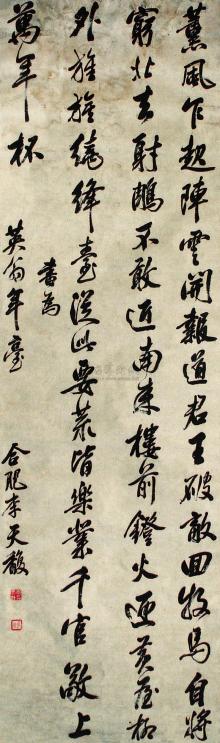 薰風乍起陣雲開報道君王破敵回牧馬自將
窮北去射鵰不敢近南來樓前鐙火迎黃屋柳
外旌旗繞絳臺從此要荒皆樂業千官上
萬年杯
書為
英翁年臺
合肥李天馥